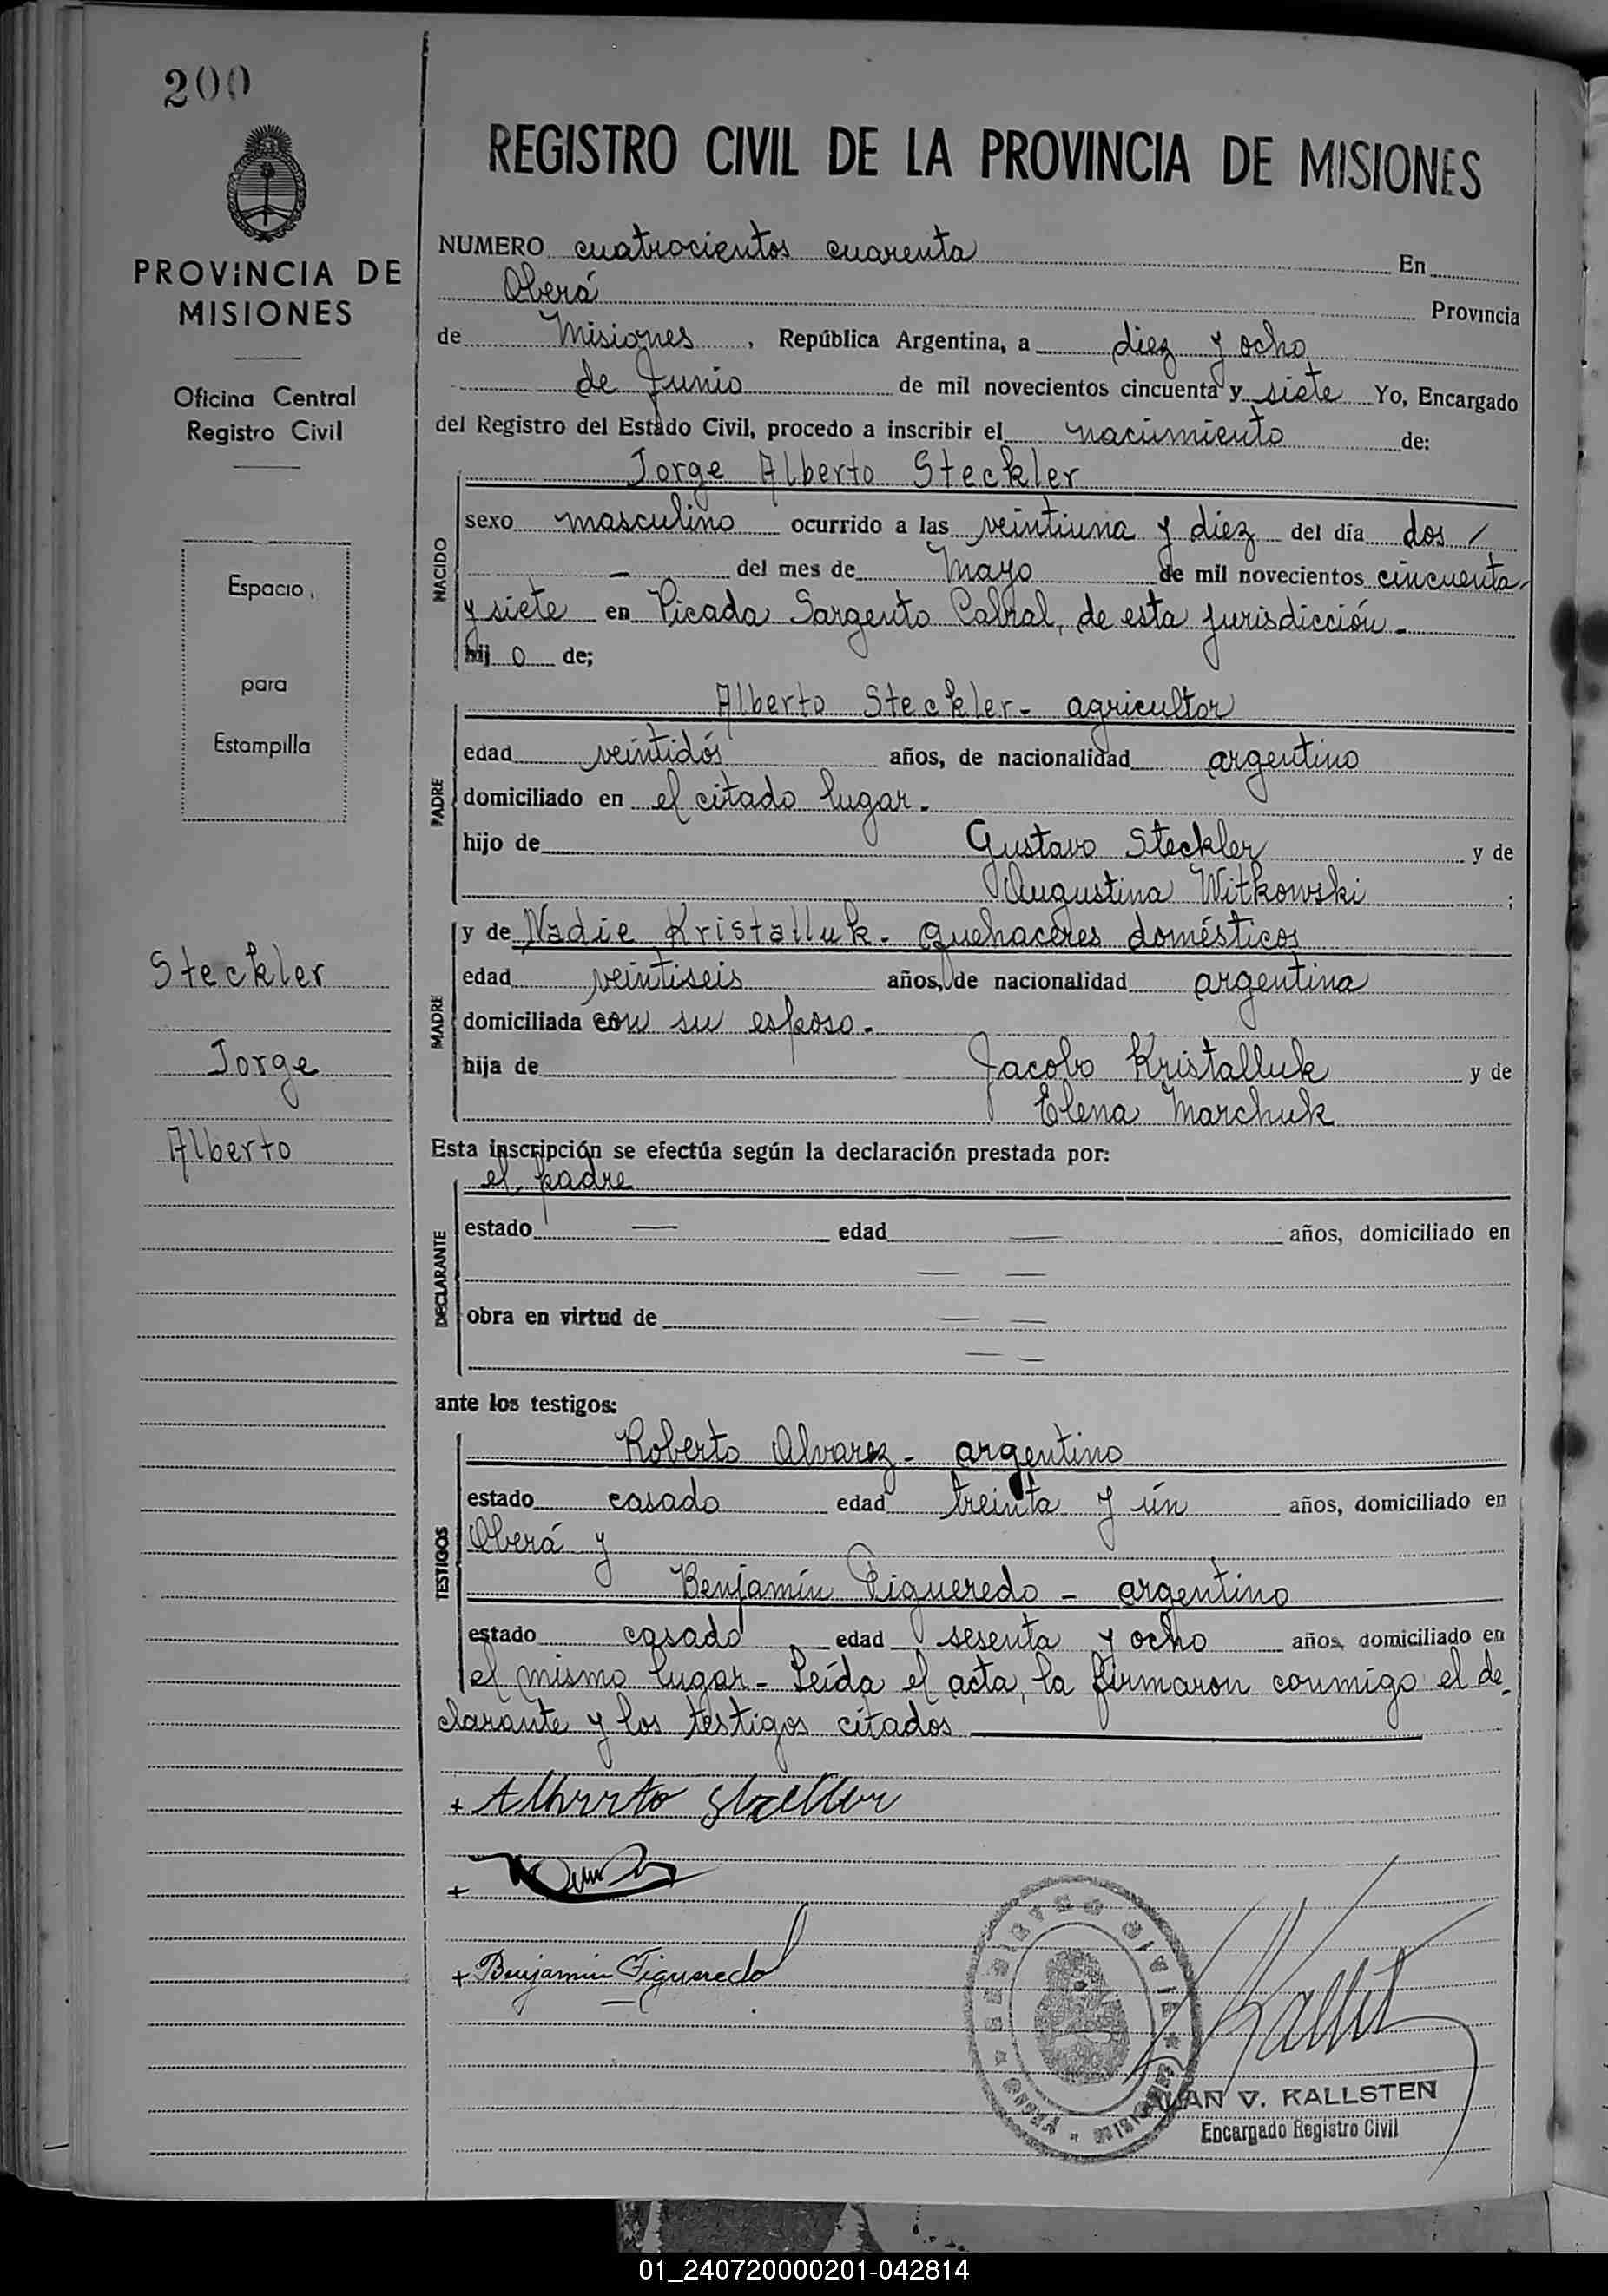 200
PROVINCIA DE
MISIONES
Oficina Central
Registro Civil
Espacio
para
Estampilla
Steckler
Jorge
Alberto
REGISTRO CIVIL DE LA PROVINCIA DE MISIONES
NUMERO cuatrocientos cuarenta En
Oberá Provincia
de Misiones, República Argentina, a diez y ocho
de Junio de mil novecientos cincuenta y siete Yo, Encargado
del Registro del Estado Civil, procedo a inscribir el nacimiento de:
Jorge Alberto Steckler
NACIDO
sexo masculino ocurrido a las veintiuna y diez del día dos /
— del mes de Mayo de mil novecientos cincuenta
y siete en Picada Sargento Cabral, de esta jurisdicción.-
hij o de;
PADRE
Alberto Steckler- agricultor
edad veintidós años, de nacionalidad argentino
domiciliado en el citado lugar.-
hijo de Gustavo Steckler y de
Augustina Witkowski ;
MADRE
y de Nadie Kristalluk- quehaceres domésticos
edad veintiseis años, de nacionalidad argentina
domiciliada con su esposo.-
hija de Jacobo Kristalluk y de
Elena Marchuk
Esta inscripción se efectúa según la declaración prestada por:
DECLARANTE
el padre
estado — edad — años, domiciliado en
— —
obra en virtud de — —
— —
ante los testigos:
TESTIGOS
Roberto Alvarez- argentino
estado casado edad treinta y ún años, domiciliado en
Oberá y
Benjamín Figueredo - argentino
estado casado edad sesenta y ocho años, domiciliado en
el mismo lugar- Leída el acta, la firmaron conmigo el de-
clarante y los testigos citados
+ Alberto Steckler
+
+ Benjamin Figueredo
REGISTRO CIVIL * MISIONES * OBERÁ *
V. KALLSTEN
Encargado Registro Civil
01_240720000201-042814